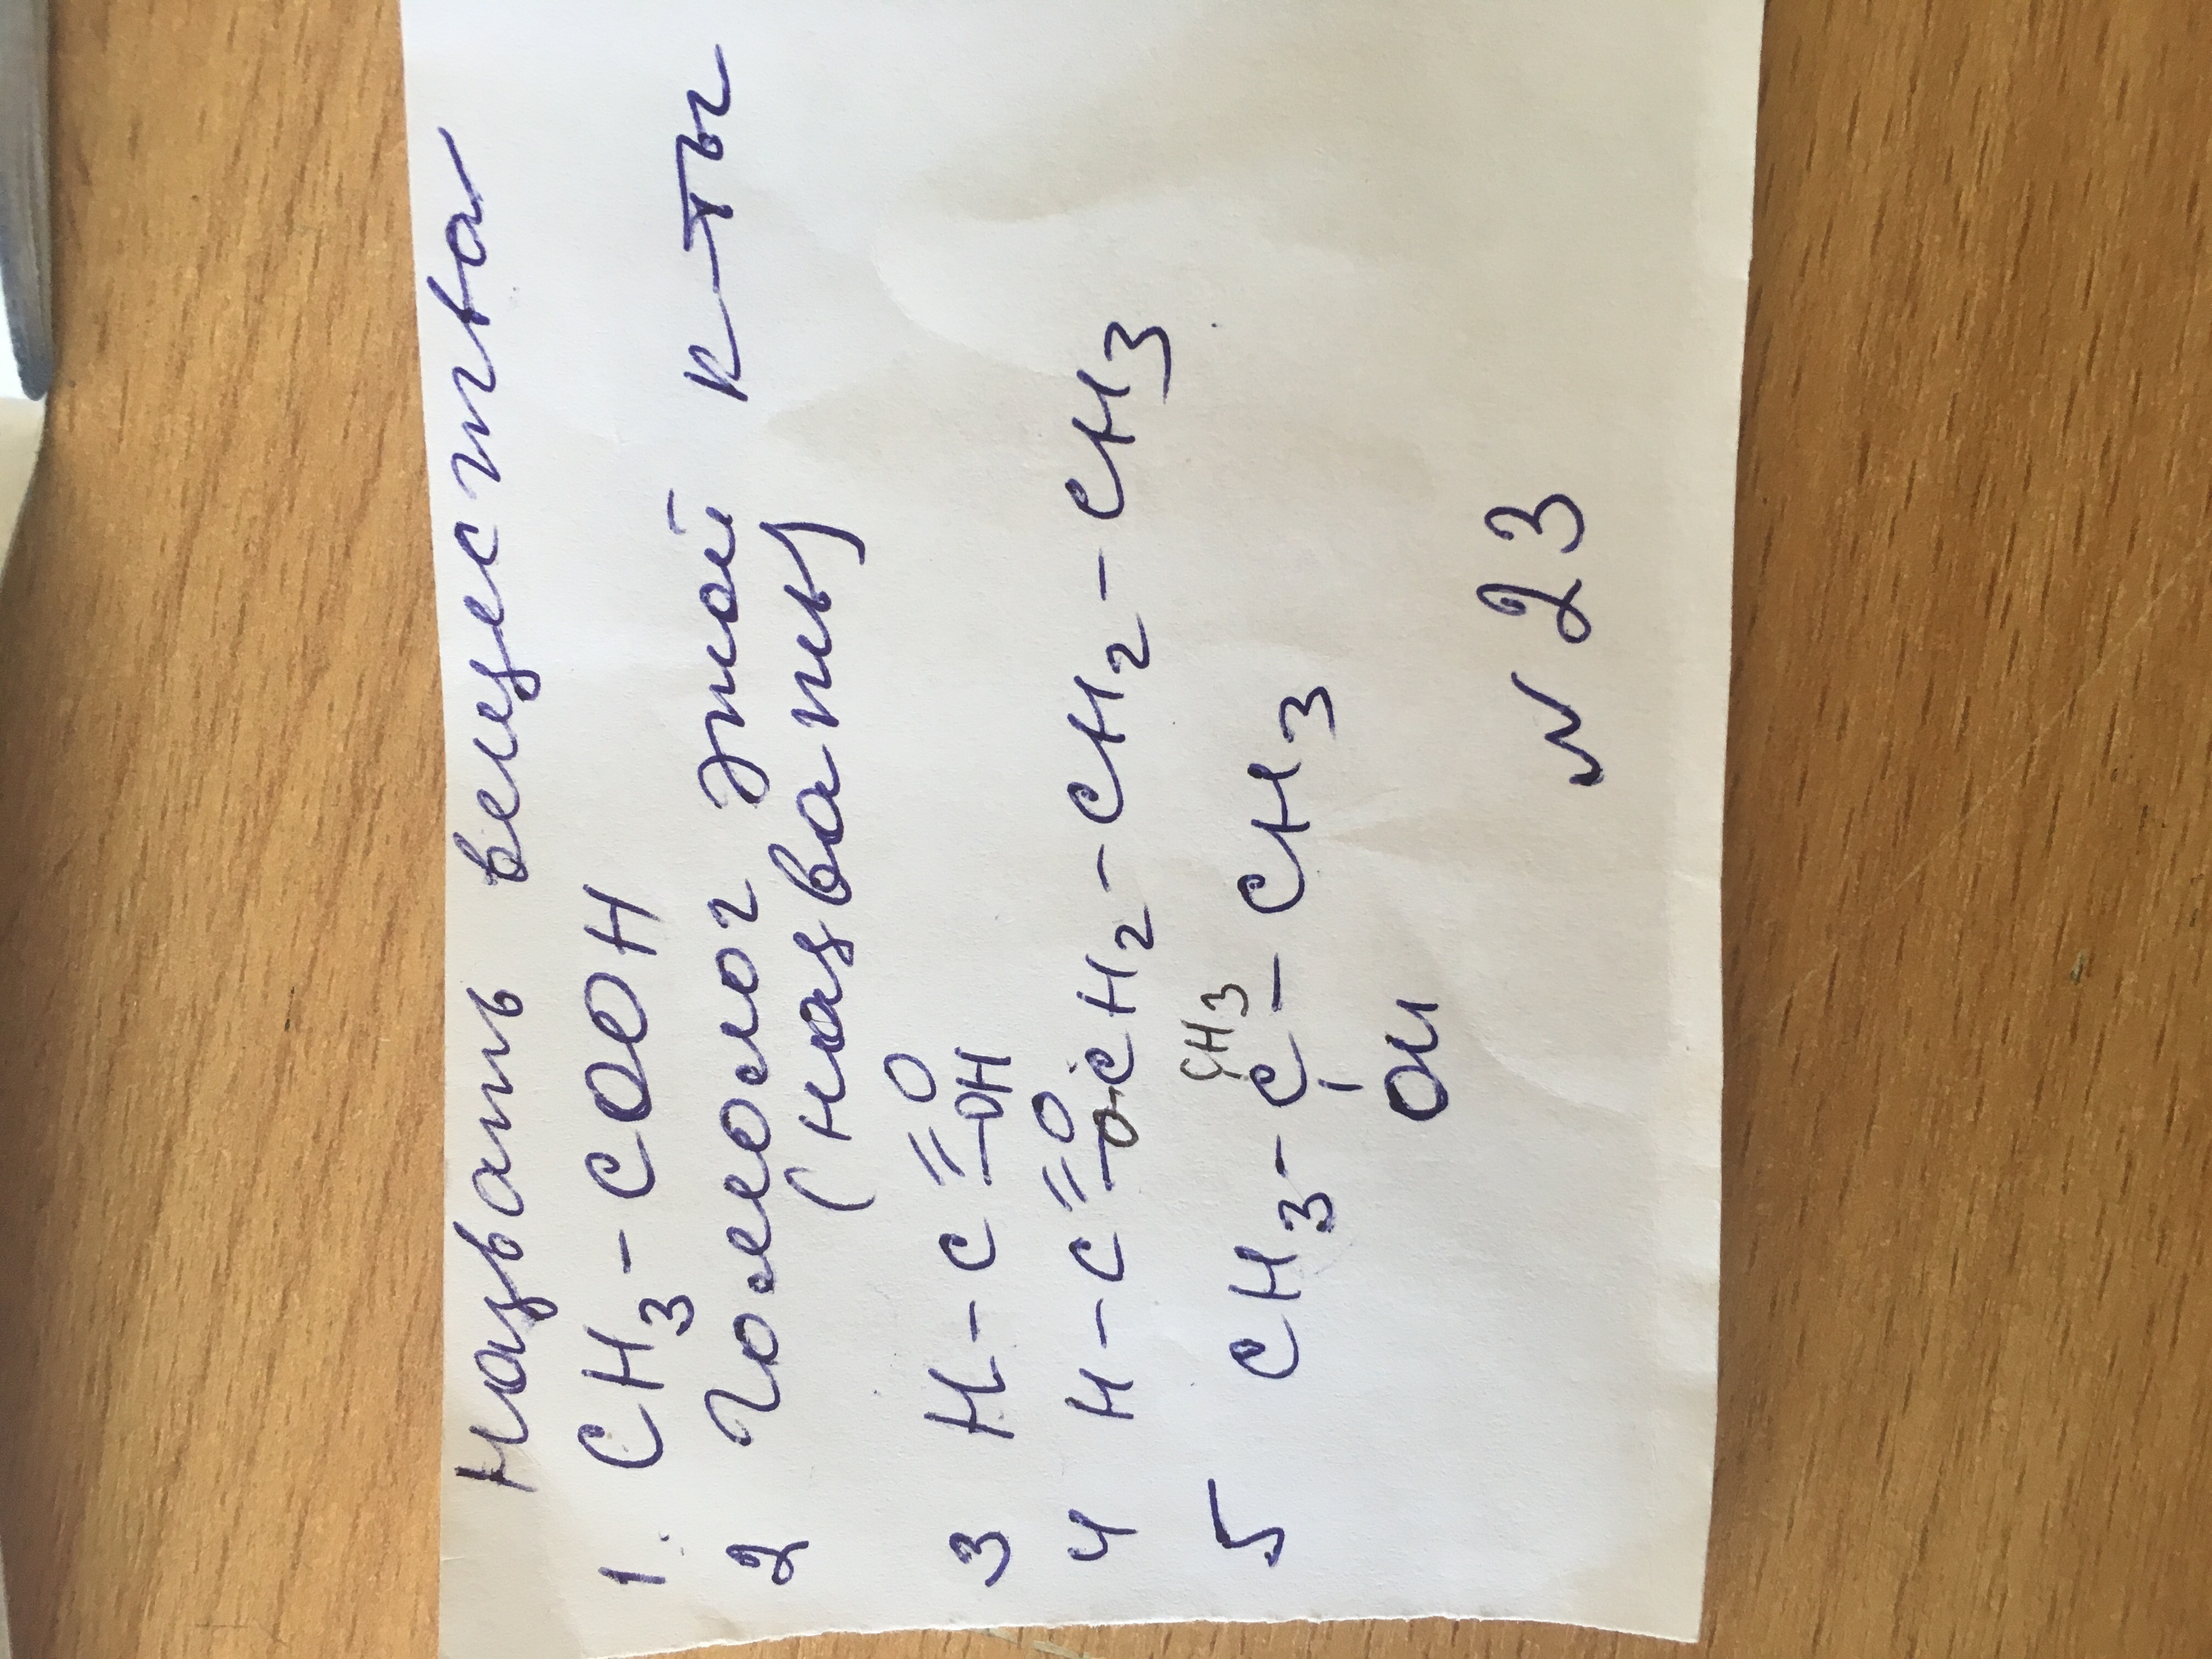 Назвать вещества
1. CH3-COOH
2 Гомолог этой к-ты
(назвать)
3 H-C=O
-OH
4 H-C=O
-O-CH2-CH2-CH2-CH3
CH3
5 CH3-C-CH3
OH
№ 23